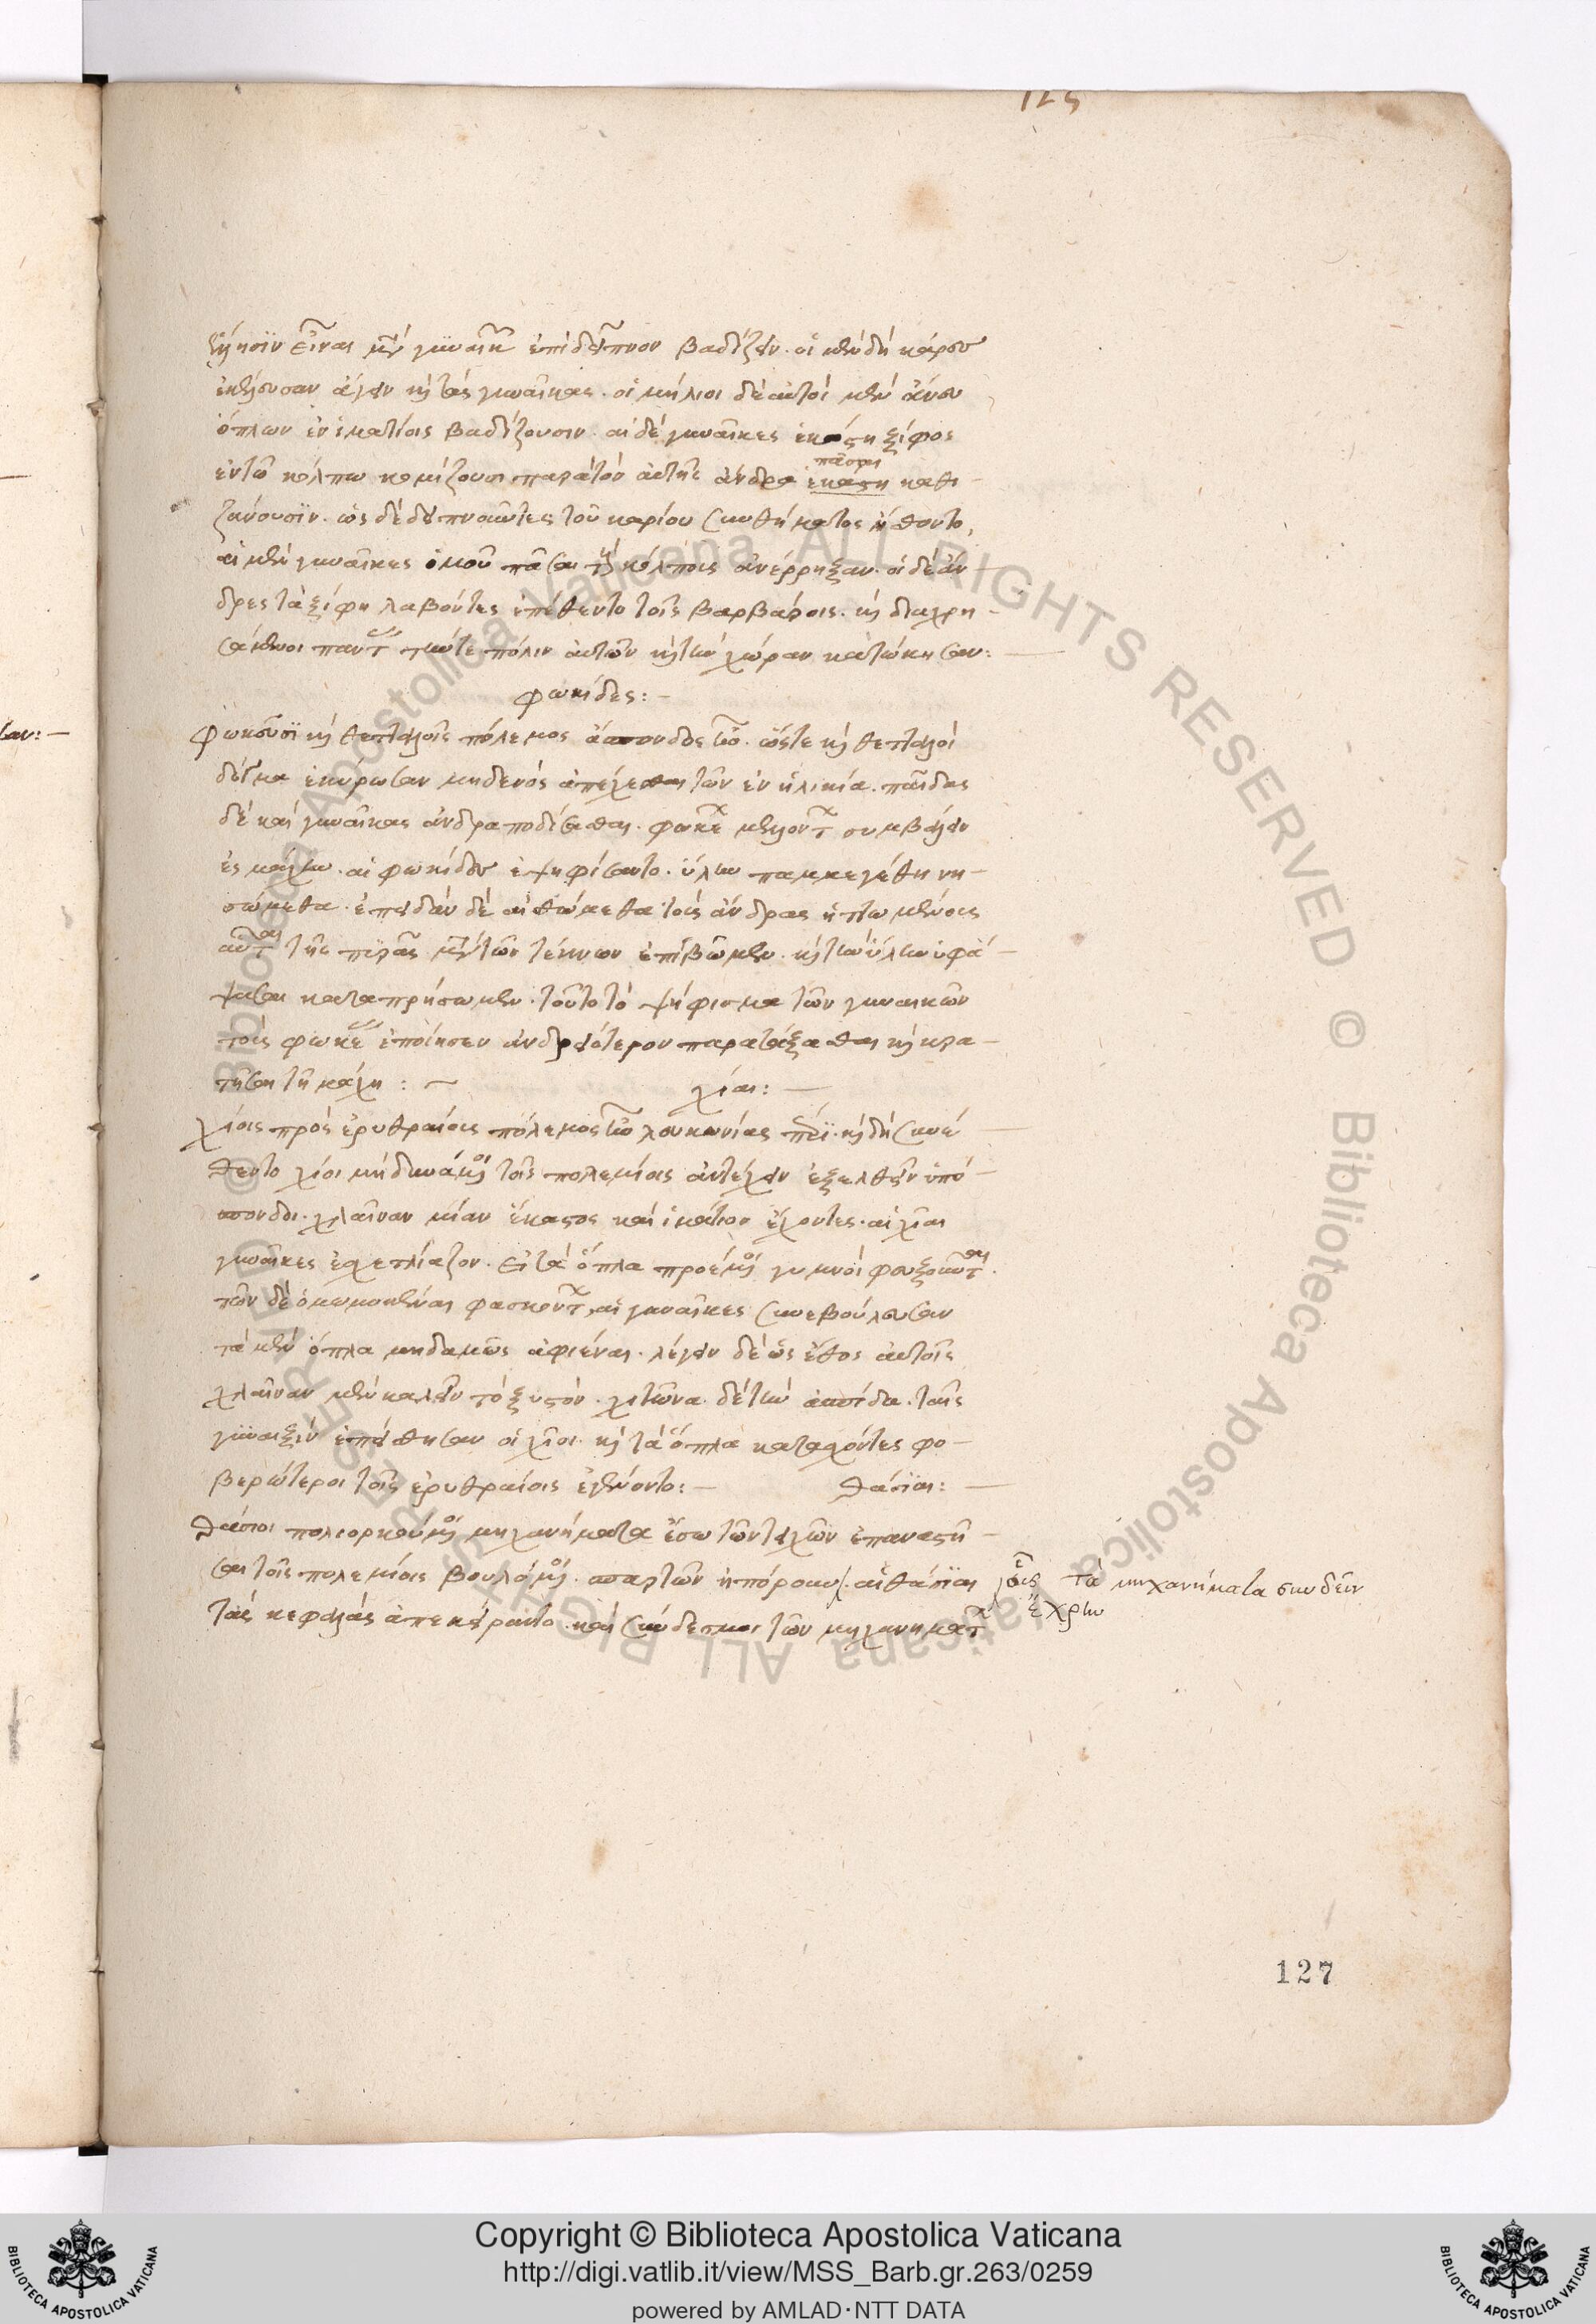 125
λησιν εἶναι μετὰ γυναικῶν ἐπὶ δεῖπνον βαδίζειν. οἱ μὲν δὴ κᾶρες
ἐκέλευσαν ἄγειν καὶ τὰς γυναῖκας. οἱ μήλιοι δὲ αὐτοὶ μὲν ἄνευ
ὅπλων ἐν ἱματίοις βαδίζουσιν. αἱ δὲ γυναῖκες ἑκάστη ξίφος
πᾶσαι
ἐν τῶ κόλπω κομίζουσι παρὰ τὸν αὐτῆς ἄνδρα ἑκάστη καθι
ζάνουσιν. ὡς δὲ δειπνοῦντες τοῦ καρίου συνθήματος ἤσθοντο,
αἱ μὲν γυναῖκες ὁμοῦ πᾶσαι τοὺς κόλπους ἀνέρρηξαν. οἱ δὲ ἄν
δρες τὰ ξίφη λαβόντες ἐπέθεντο τοῖς βαρβάροις. καὶ διαχρη
σάμενοι πάντας τήν τε πόλιν αὐτῶν καὶ τὴν χώραν κατώκησαν:
φωκίδες:
Φωκεῦσι καὶ θετταλοῖς πόλεμος ἄσπονδος ἦν. ὥστε καὶ θετταλοὶ
δόγμα ἐκύρωσαν μηδενὸς ἀπέχεσθαι τῶν ἐν ἡλικία. παῖδας
δὲ καὶ γυναῖκας ἀνδραποδίσασθαι. φωκέων μελλόντων συμβάλειν
ἐς μάχην. αἱ φωκίδες ἐψηφίσαντο. ὕλην παμμεγέθη νη
σώμεθα. ἐπειδὰν δὲ αἰσθώμεθα τοὺς ἄνδρας ἡττωμένους
αὗται τῆς πυρᾶς μετὰ τῶν τέκνων ἐπιβῶμεν. καὶ τὴν ὕλην ὑφά
ψασαι καταπρήσωμεν. τοῦτο τὸ ψήφισμα τῶν γυναικῶν
τοὺς φωκέας ἐποίησεν ἀνδρειότερον παρατάξασθαι καὶ κρα
τῆσαι τῆ μάχη: χίαι:
χίοις πρὸς ἐρυθραίους πόλεμος ἦν λευκωνίας πέρι. καὶ δὴ συνέ
θεντο χίοι μὴ δυνάμενοι τοῖς πολεμίοις ἀντέχειν ἐξελθεῖν ὑπό
σπονδοι. χλαῖναν μίαν ἕκαστος καὶ ἱμάτιον ἔχοντες. αἱ χίαι
γυναῖκες ἐσχετλίαζον. εἰ τὰ ὅπλα προέμενοι γυμνοὶ φευξοῦνται.
τῶν δὲ ὀμωμοκέναι φασκόντων, αἱ γυναῖκες συνεβούλευσαν
τὰ μὲν ὅπλα μηδαμῶς ἀφιέναι. λέγειν δὲ ὡς ἔθος αὐτοῖς
χλαῖναν μὲν καλεῖν τὸ ξυστόν. χιτῶνα δὲ τὴν ἀσπίδα. ταῖς
γυναιξὶν ἐπείσθησαν οἱ χῖοι. καὶ τὰ ὅπλα κατασχόντες φο
βερώτεροι τοῖς ἐρυθραίοις ἐγένοντο: θάσιαι:
Θάσιοι πολιορκούμενοι μηχανήματα ἔσω τῶν τειχῶν ἐπαναστῆ
σαι τοῖς πολεμίοις βουλόμενοι. σπαρτῶν ἠπόρουν. αἱ θάσιαι
τὰς κεφαλὰς ἀπεκείραντο. καὶ σύνδεσμοι τῶν μηχανημάτων
οἷς τὰ μηχανήματα συνδεῖν
ἐχρῆν
127
Copyright © Biblioteca Apostolica Vaticana
http://digi.vatlib.it/view/MSS_Barb.gr.263/0259
powered by AMLAD·NTT DATA